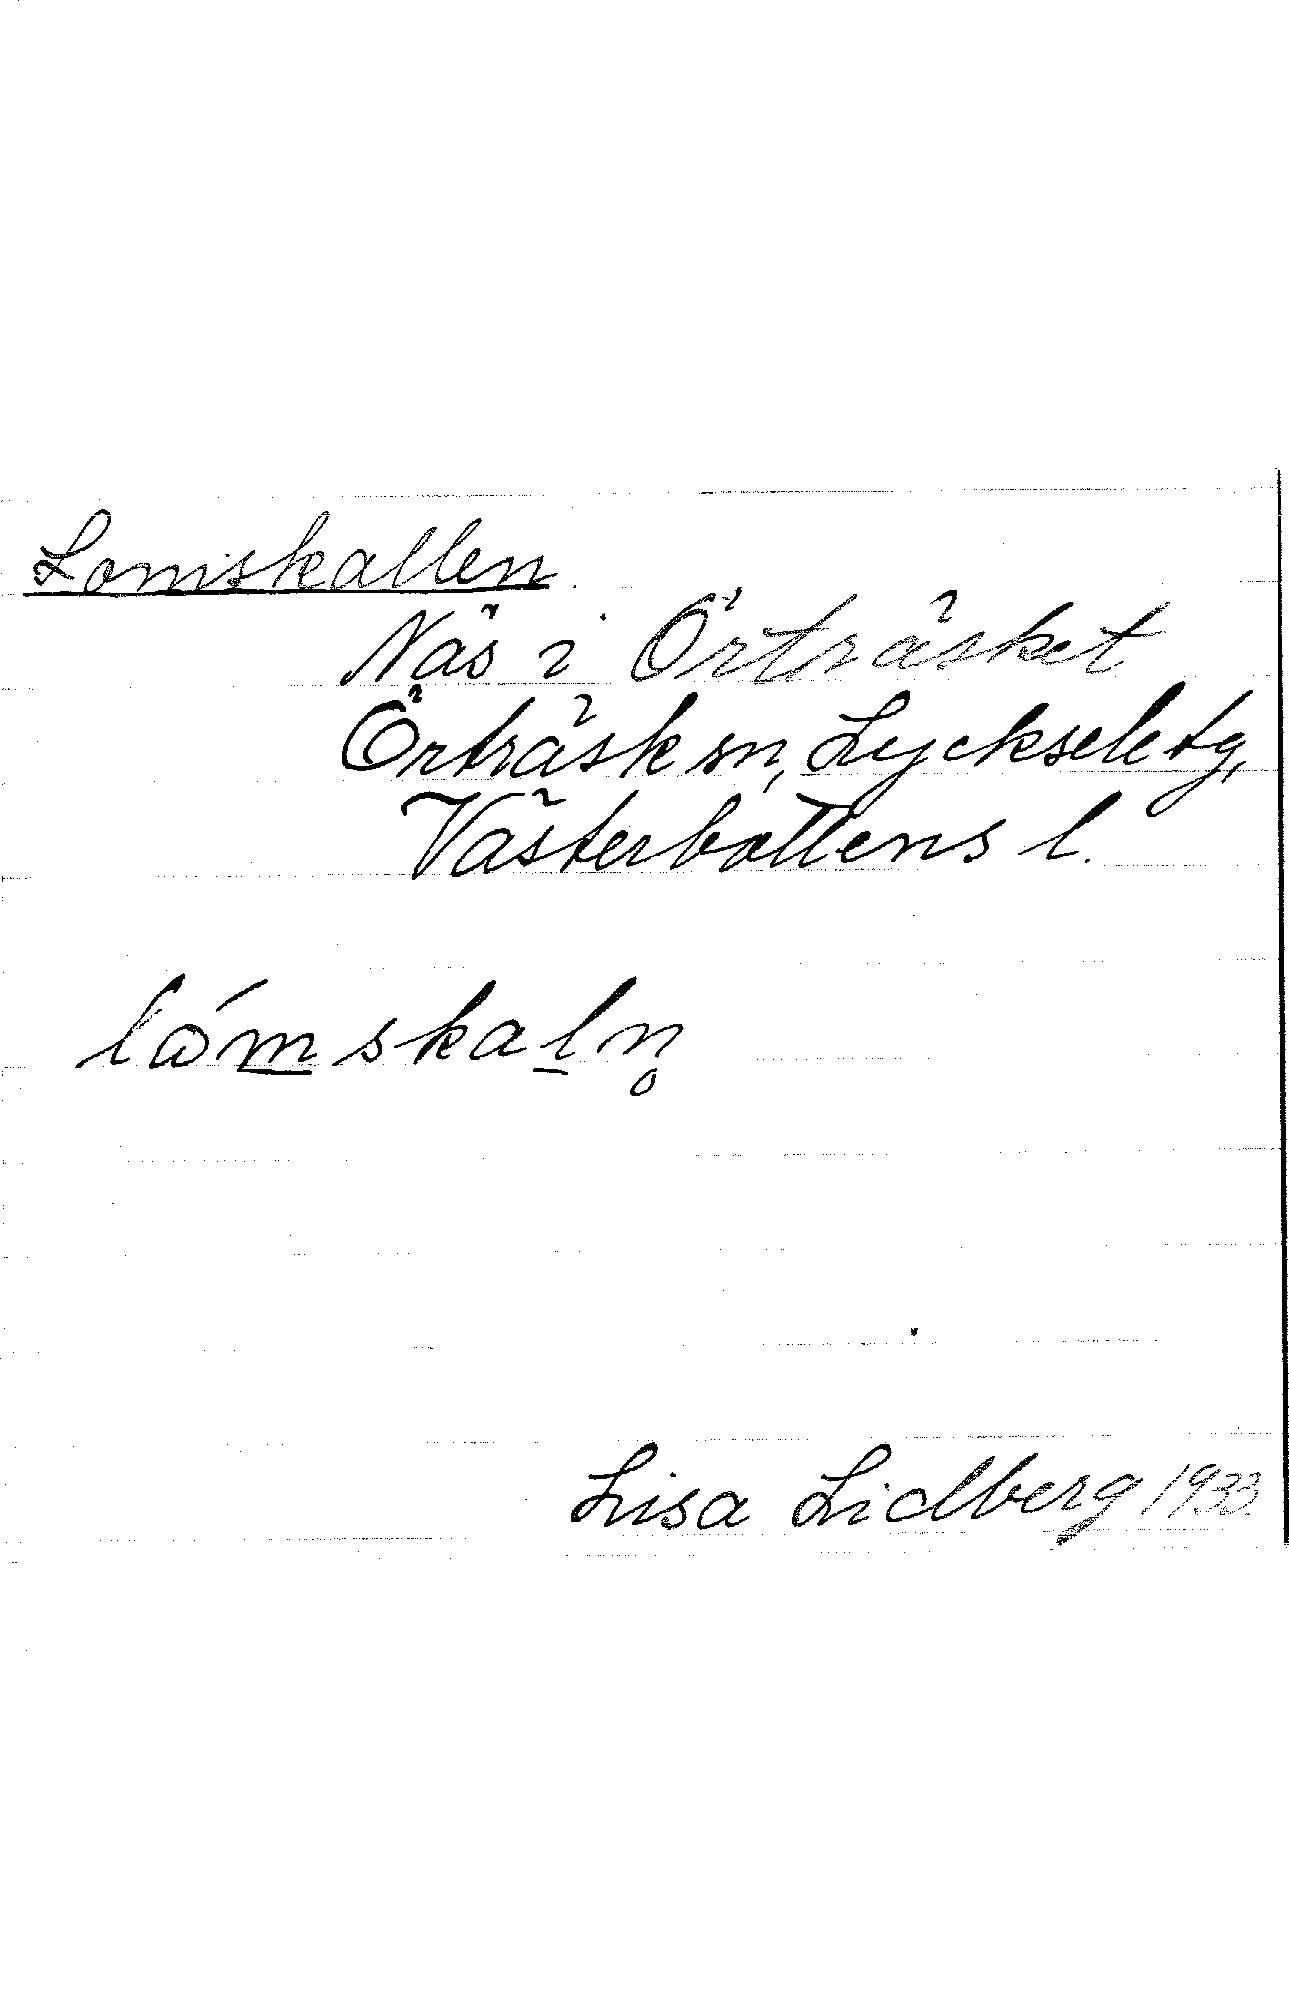 Lomskallen
Näs i Örträsket
Örträsk sn, Lycksele tg,
Västerbottens l.
lóm̲skal̲n̥
Lisa Lidberg 1933.